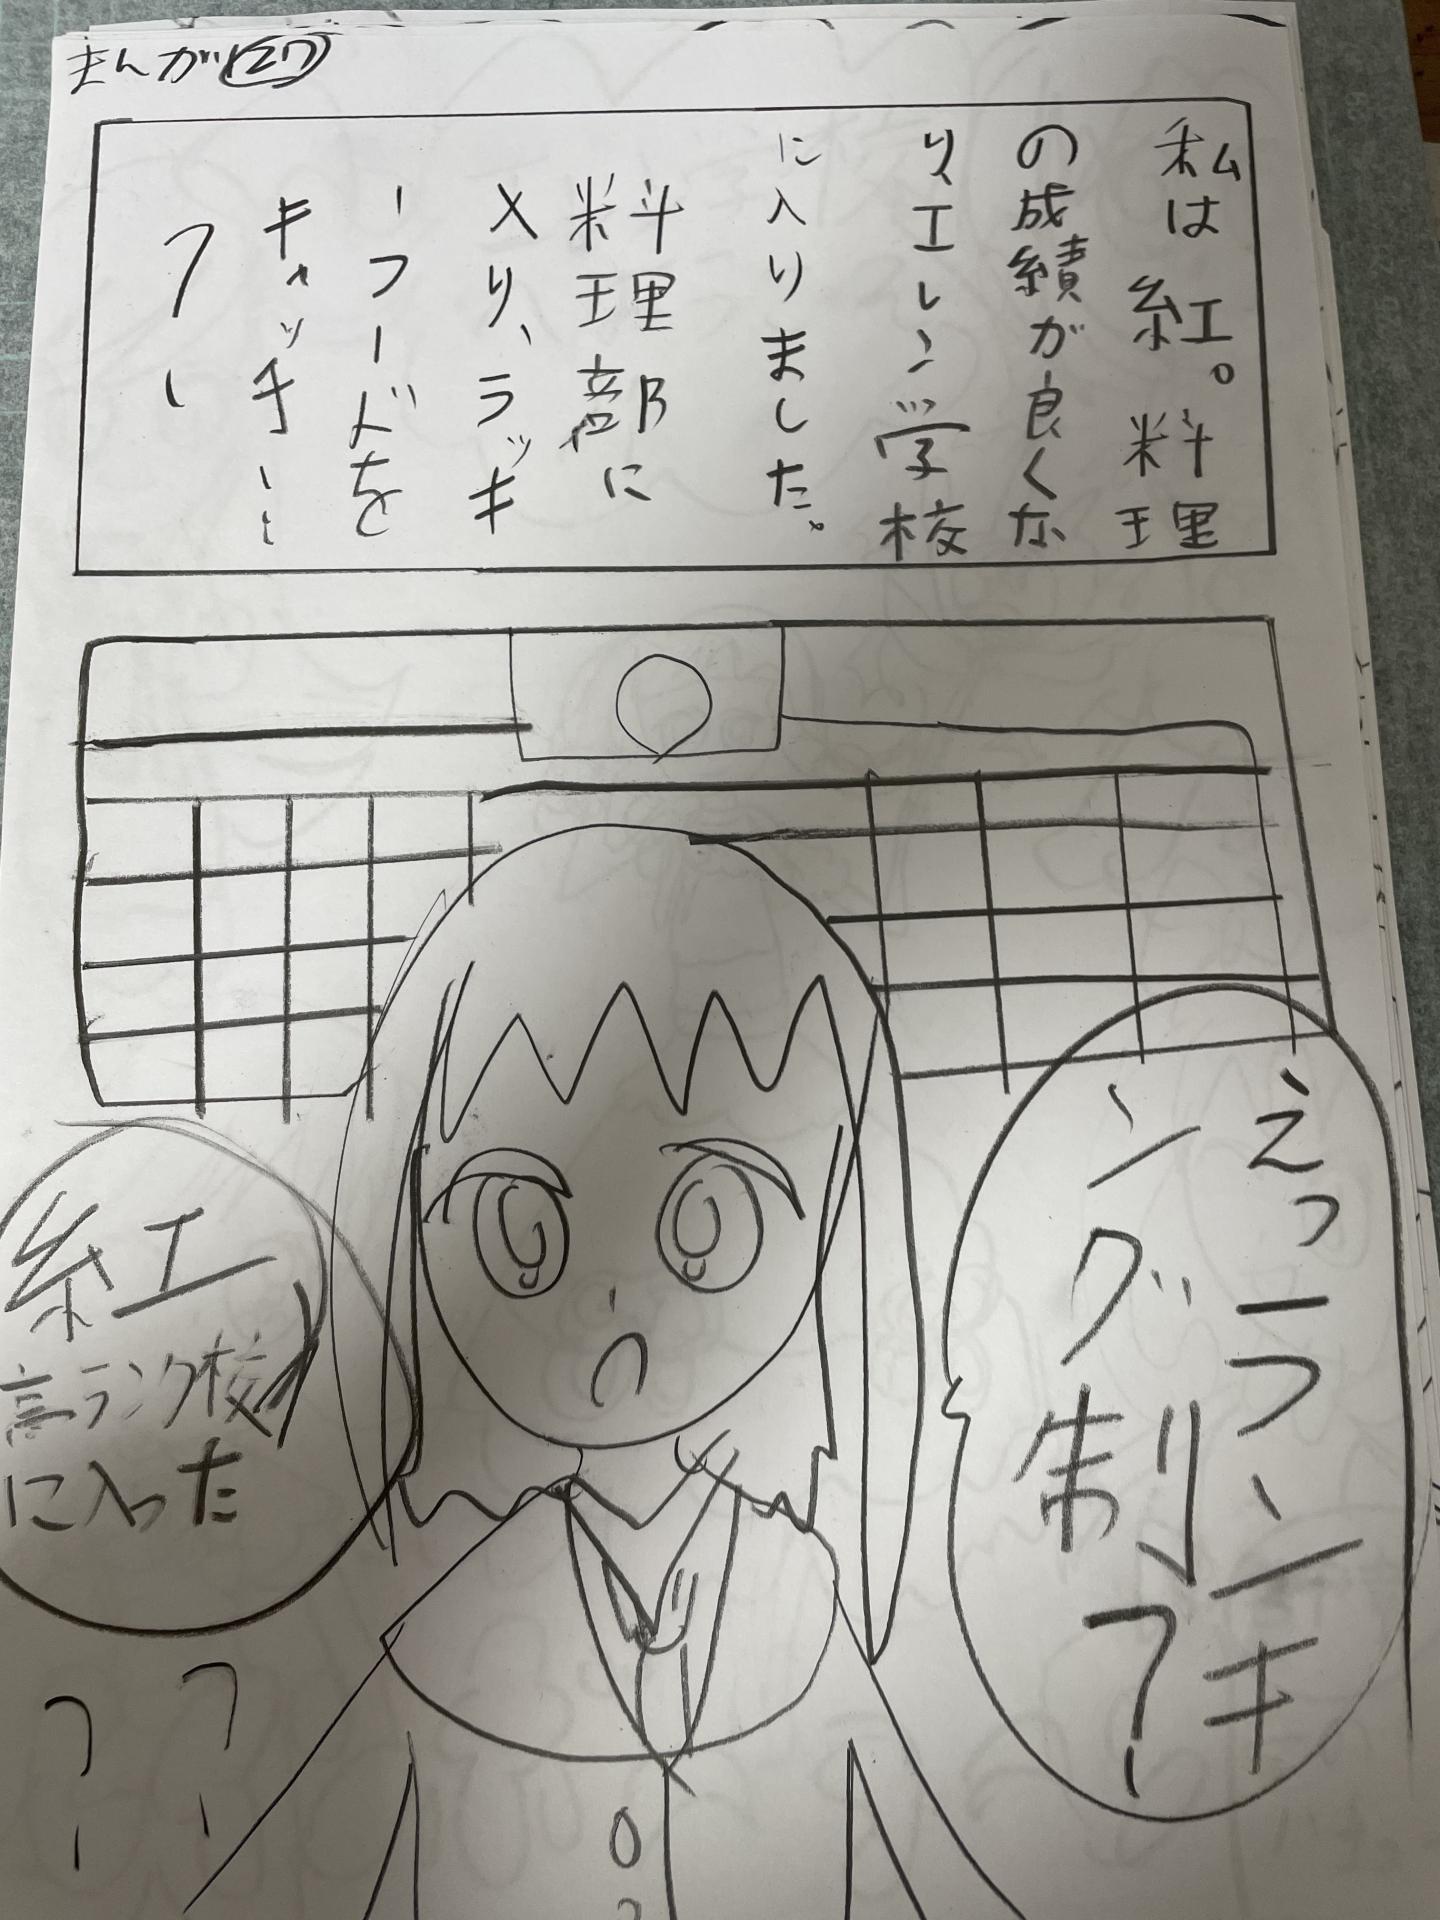 まんが27
私は紅。料理
の成績が良くな
り、エレン学校
に入りました。
料理部に
入り、ラッキ
ーフードを
キャッチ!!
?
えっーランキ
ング制?
紅
高ランク校
に入った
??